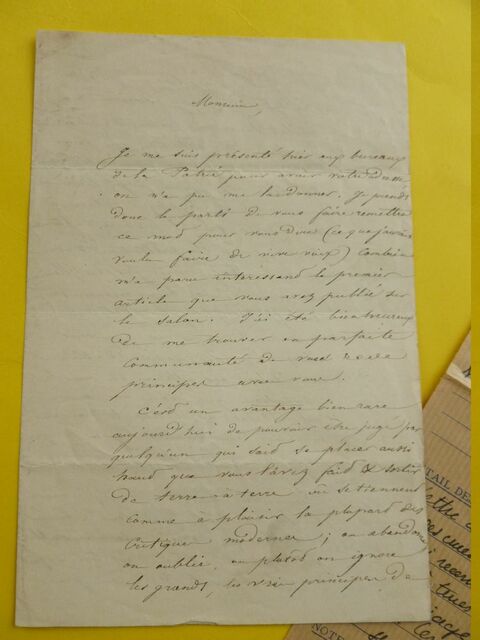 Monsieur,
Je me suis présenté hier aux bureaux
de la Patrie pour avoir votre adresse
on n'a pu me la donner. Je prends
donc le parti de vous faire remettre
ce mot pour vous dire (ce que j'aurais
voulu faire de vive voix) combien
m'a paru intéressant le premier
article que vous avez publié sur
le Salon. J'ai été bien heureux
de me trouver en parfaite
communauté de vues et de
principes avec vous.
C'est un avantage bien rare
aujourd'hui de pouvoir être jugé par
quelqu'un qui sait se placer aussi
haut que vous l'avez fait & sortir
de terre-à-terre où se tiennent
comme à plaisir la plupart des
critiques modernes ; on abandonne
on oublie, ou plutôt on ignore
les grands, les vrais principes de
TAIL DE
NOT